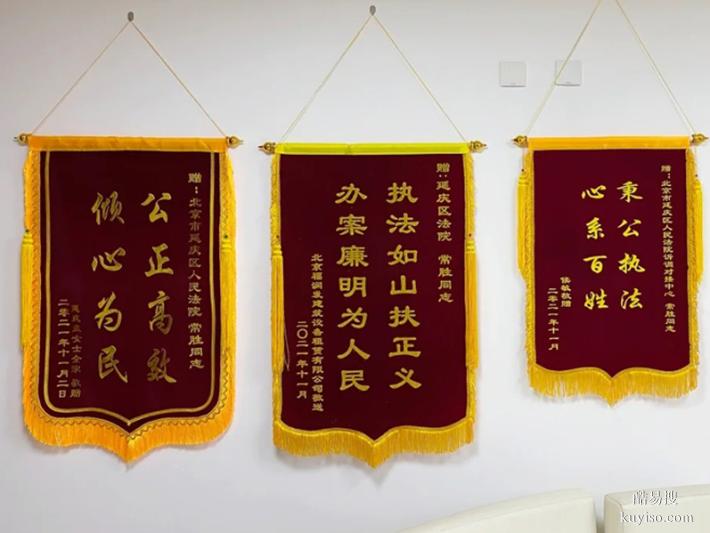 赠：北京市延庆区人民法院 常胜同志
公正高效
倾心为民
二零二一年十一月二日
赠：延庆区法院 常胜同志
执法如山扶正义
办案廉明为人民
北京福润发建筑设备租赁有限公司敬送
二〇二一年十一月
赠：北京市延庆区人民法院诉调对接中心 常胜同志
秉公执法
心系百姓
侯敏敬赠
二零二一年十一月
酷易搜
kuyiso.com